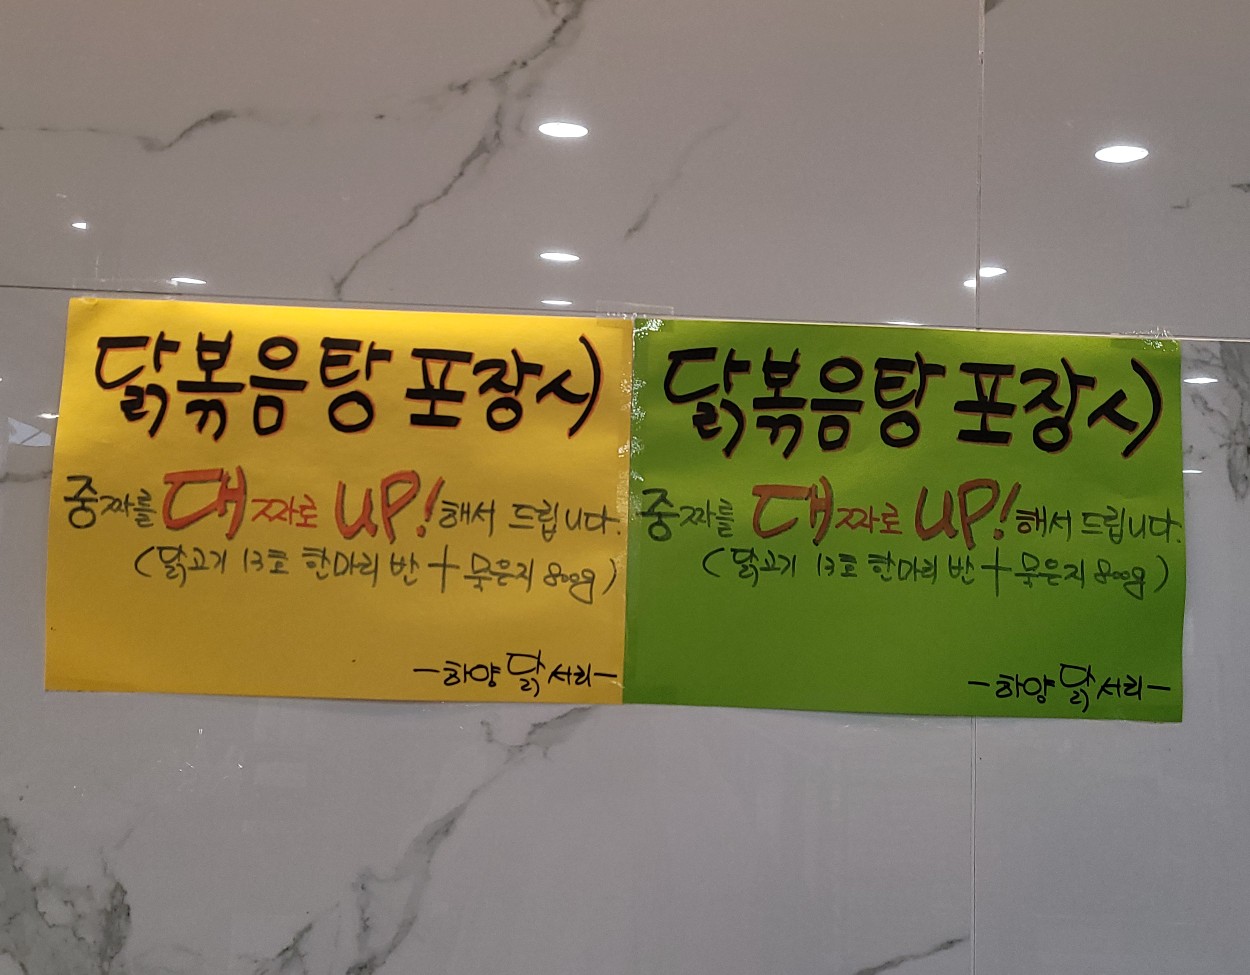 닭볶음탕 포장시
중짜를 대짜로 UP! 해서 드립니다.
(닭고기 13호 한마리 반 + 묵은지 800g)
-하양 닭 서리-
닭볶음탕 포장시
중짜를 대짜로 UP! 해서 드립니다.
(닭고기 13호 한마리 반 + 묵은지 800g)
-하양 닭 서리-